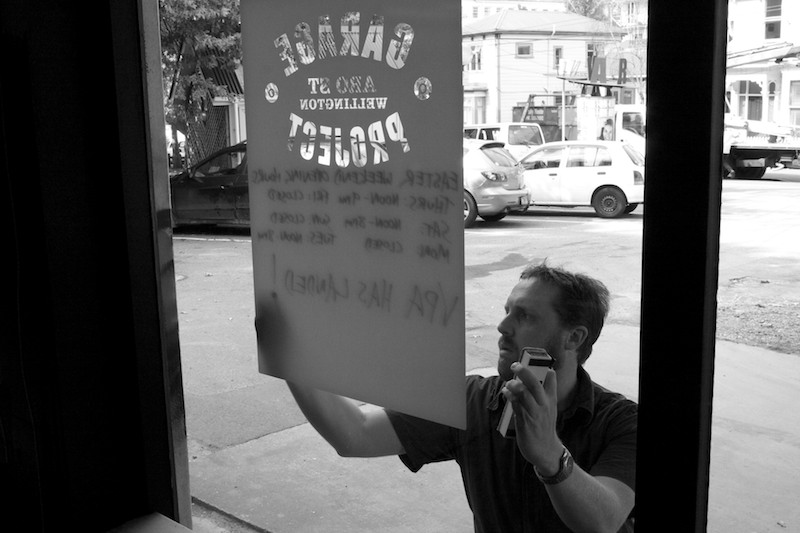 GARAGE
ARO ST
WELLINGTON
PROJECT
EASTER WEEKEND OPENING HOURS
THURS NOON-9PM FRI CLOSED
SAT NOON-8PM SUN CLOSED
MON CLOSED TUES NOON-7PM
VPA HAS LANDED!